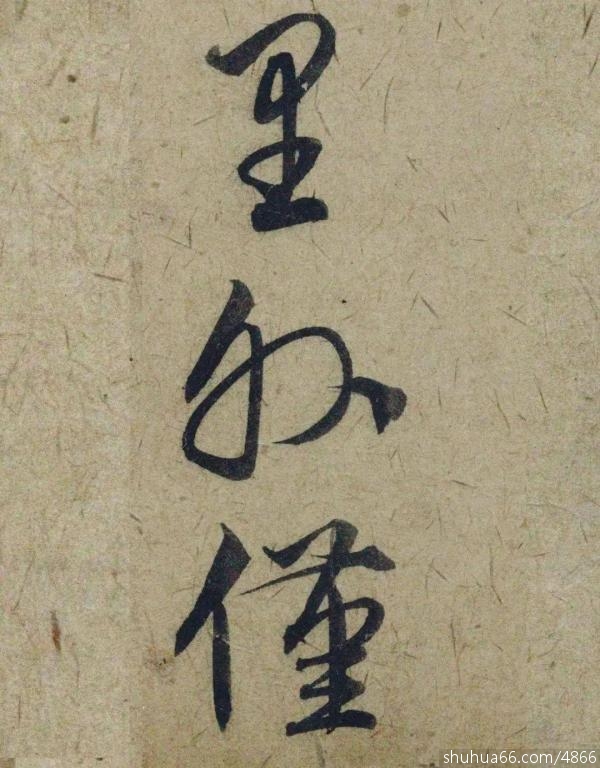 里外僅
shuhua66.com/4866